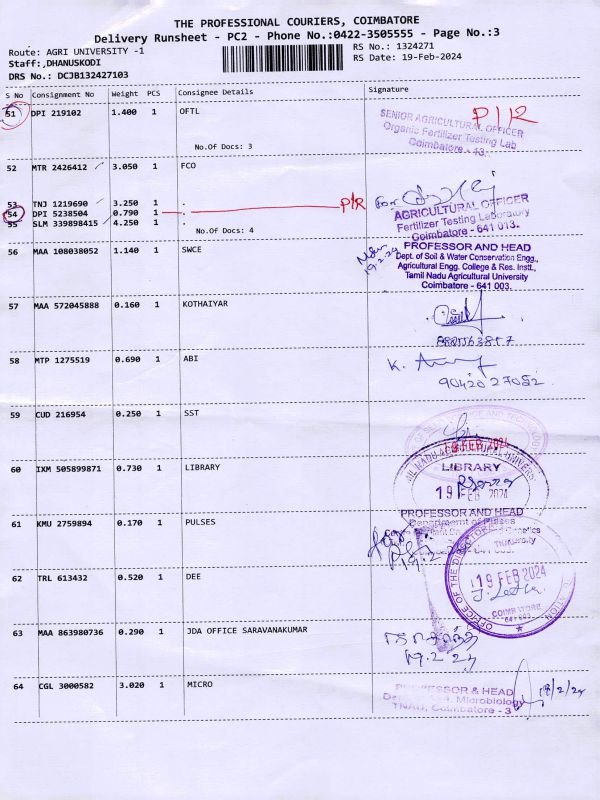 THE PROFESSIONAL COURIERS, COIMBATORE
Delivery Runsheet - PC2 - Phone No.:0422-3505555 - Page No.:3
Route: AGRI UNIVERSITY -1
RS No.: 1324271
Staff:,DHANUSKODI
RS Date: 19-Feb-2024
DRS No.: DCJB132427103
S No Consignment No Weight PCS Consignee Details Signature
51 DPI 219102 1.400 1 OFTL
P/R
SENIOR AGRICULTURAL OFFICER
Organic Fertilizer Testing Lab
Coimbatore - 13.
No.Of Docs: 3
52 MTR 2426412 3.050 1 FCO
53 TNJ 1219690 3.250 1 .
54 DPI 5238504 0.790 1 . P/R
55 SLM 339898415 4.250 1 .
No.Of Docs: 4
for
AGRICULTURAL OFFICER
Fertilizer Testing Laboratory
Coimbatore - 641 013.
56 MAA 108038052 1.140 1 SWCE
19.2.24
PROFESSOR AND HEAD
Dept. of Soil & Water Conservation Engg.,
Agricultural Engg. College & Res. Instt.,
Tamil Nadu Agricultural University
Coimbatore - 641 003.
57 MAA 572045888 0.160 1 KOTHAIYAR
58 MTP 1275519 0.690 1 ABI
9042027052
59 CUD 216954 0.250 1 SST
19 FEB 2024
60 IXM 505899871 0.730 1 LIBRARY
TAMIL NADU AGRICULTURAL UNIVERSITY
LIBRARY
19 FEB 2024
61 KMU 2759894 0.170 1 PULSES
PROFESSOR AND HEAD
Department of Pulses
19.2.24
62 TRL 613432 0.520 1 DEE
OFFICE OF THE DIRECTOR
19 FEB 2024
COIMBATORE
641 003.
63 MAA 863980736 0.290 1 JDA OFFICE SARAVANAKUMAR
19.2.24
64 CGL 3000582 3.020 1 MICRO
PROFESSOR & HEAD
Dept. of Agrl. Microbiology
TNAU, Coimbatore - 3
19/2/24